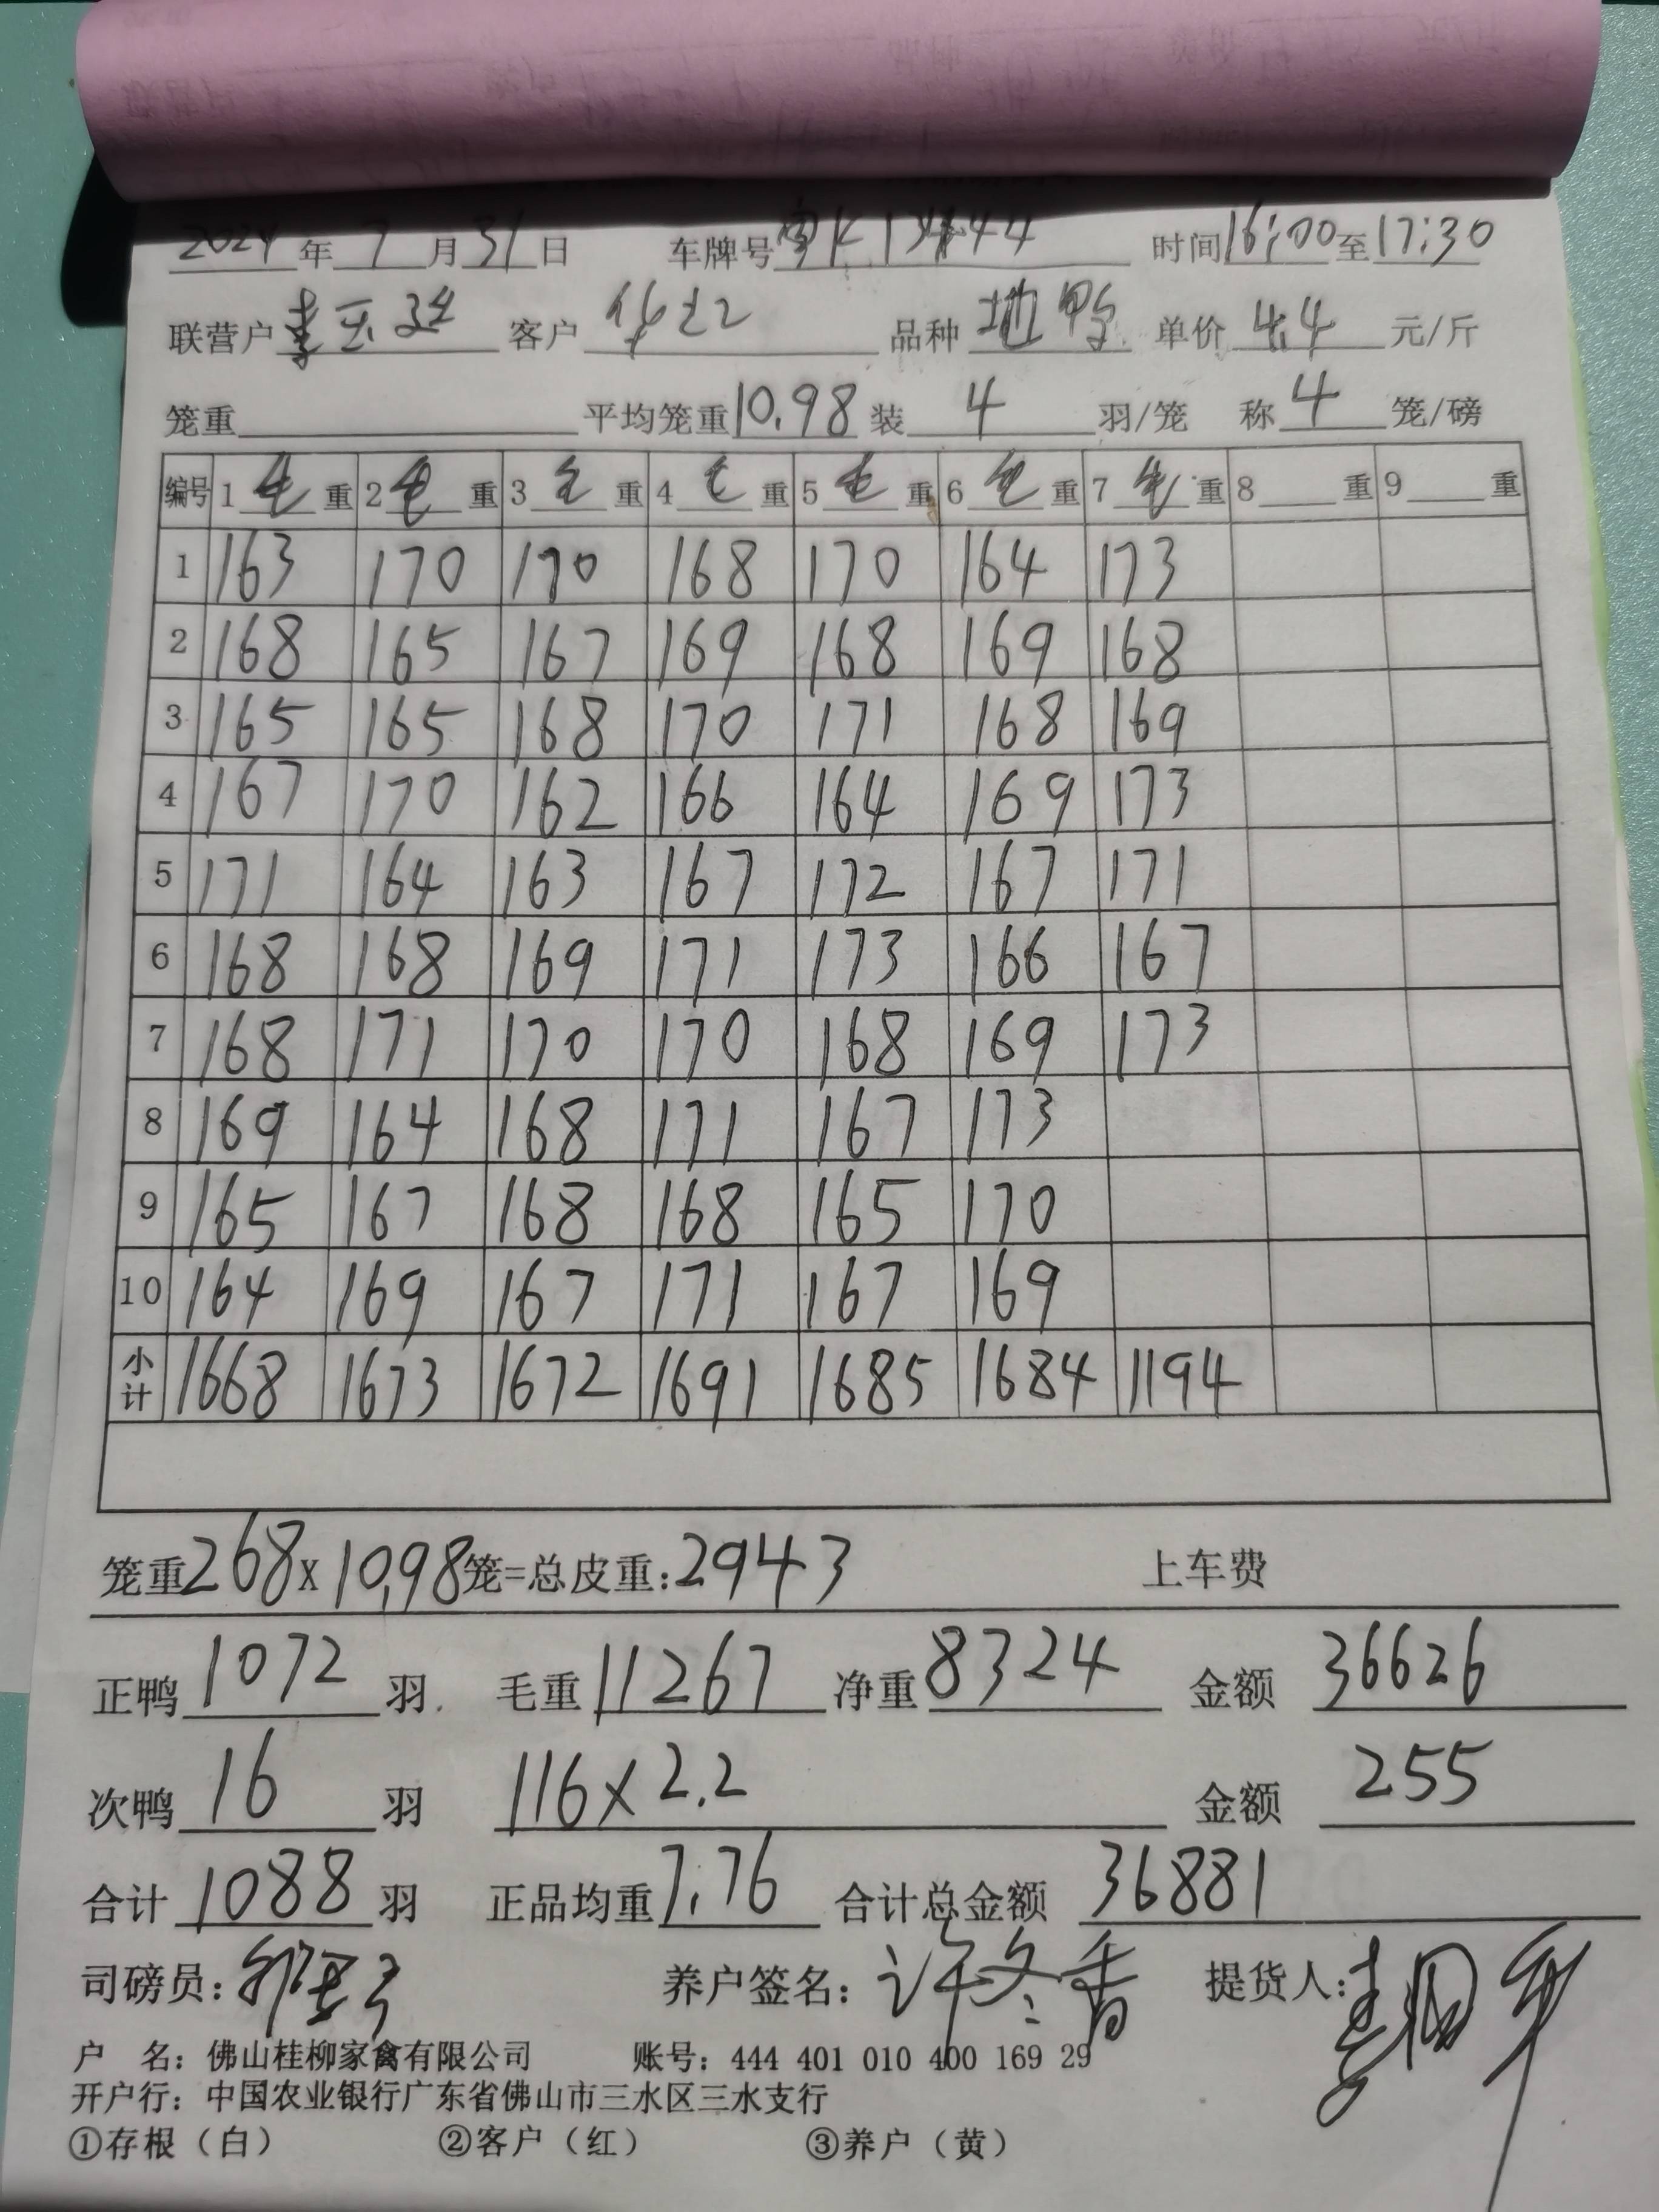 2024年7月31日 车牌号 时间16:00至17:30
联营户 客户 品种 地鸭 单价 4.4 元/斤
笼重 平均笼重10.98 装 4 羽/笼 称 4 笼/磅
编号 1 毛 重 2 毛 重 3 毛 重 4 毛 重 5 毛 重 6 毛 重 7 毛 重 8 重 9 重
1 163 170 170 168 170 164 173
2 168 165 167 169 168 169 168
3 165 165 168 170 171 168 169
4 167 170 162 166 164 169 173
5 171 164 163 167 172 167 171
6 168 168 169 171 173 166 167
7 168 171 170 170 168 169 173
8 169 164 168 171 167 173
9 165 167 168 168 165 170
10 164 169 167 171 167 169
小计 1668 1673 1672 1691 1685 1684 1194
笼重268x10.98笼=总皮重:2943 上车费
正鸭 1072 羽 毛重 11267 净重 8324 金额 36626
次鸭 16 羽 116×2.2 金额 255
合计 1088 羽 正品均重 7.76 合计总金额 36881
司磅员: 养户签名: 许冬香 提货人:
户 名: 佛山桂柳家禽有限公司 账号: 444 401 010 400 169 29
开户行: 中国农业银行广东省佛山市三水区三水支行
①存根（白） ②客户（红） ③养户（黄）